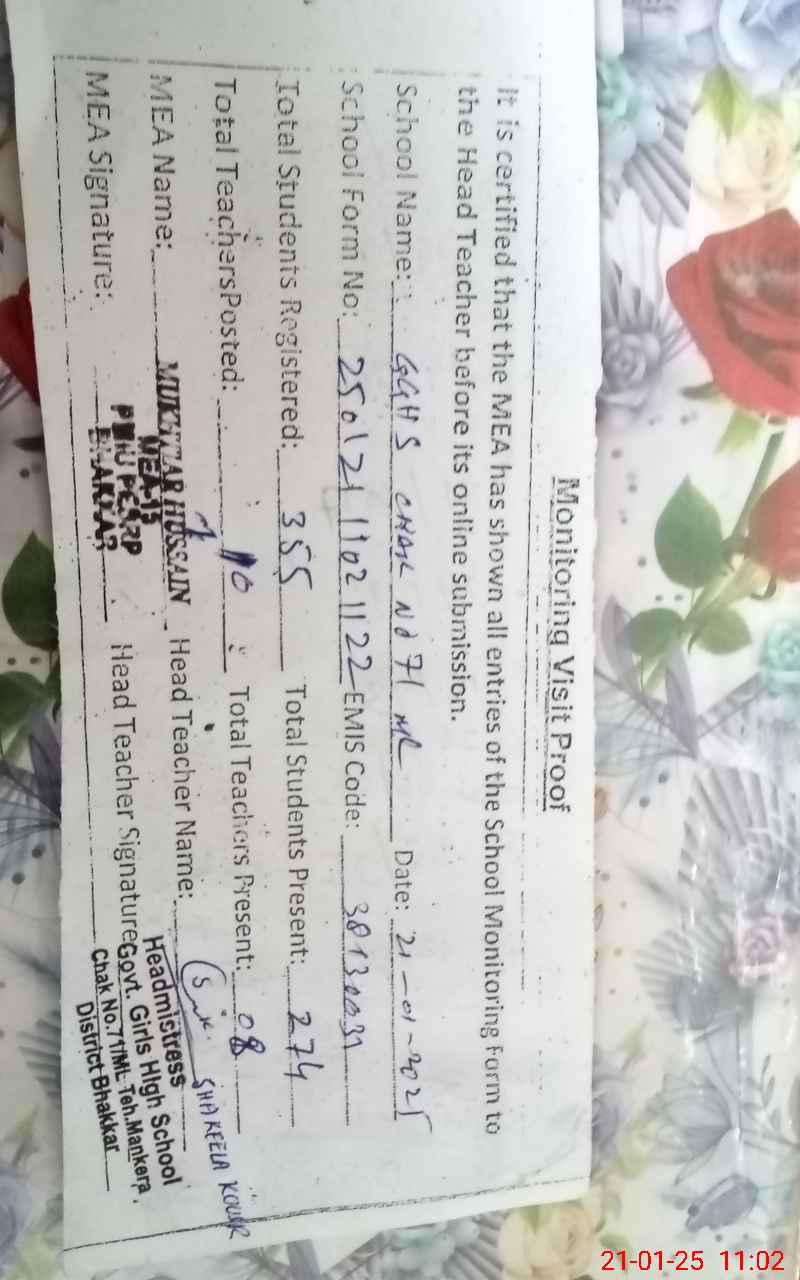 Monitoring Visit Proof
It is certified that the MEA has shown all entries of the School Monitoring Form to
the Head Teacher before its online submission.
School Name: GGHS CHAK No 71 ML Date: 21-01-2025
School Form No: 25012111021122 EMIS Code: 38130031
Total Students Registered: 355 Total Students Present: 274
Total Teachers Posted: 10 Total Teachers Present: 08
MEA Name: MUKHTAR HUSSAIN Head Teacher Name: SHAKEELA KOUSR
MEA-15
PMIU PESRP
BHAKKAR
MEA Signature: Head Teacher Signature
Headmistress
Govt. Girls High School
Chak No.71/ML Teh.Mankera.
District Bhakkar
21-01-25 11:02